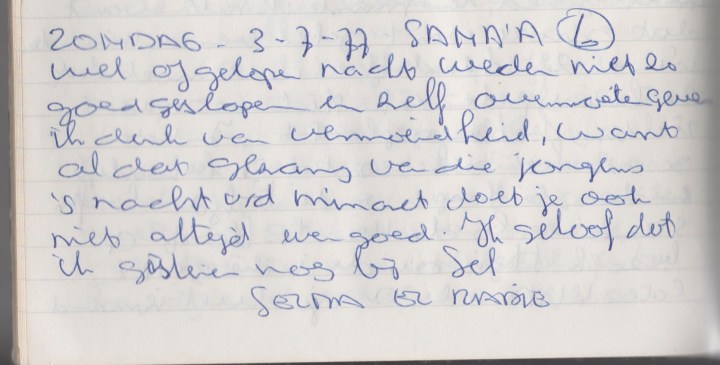 ZONDAG - 3-7-77 SANA'A (6)
wel afgelopen nacht weder niet zo
goed geslapen en zelf overmoeten geven
ik denk van vermoeidheid, want
al dat gezang van die jongens
's nachts v/d minaret doet je ook
niet altijd even goed. Ik geloof dat
ik gisteren nog bij Sel
SELMA EL RADIE